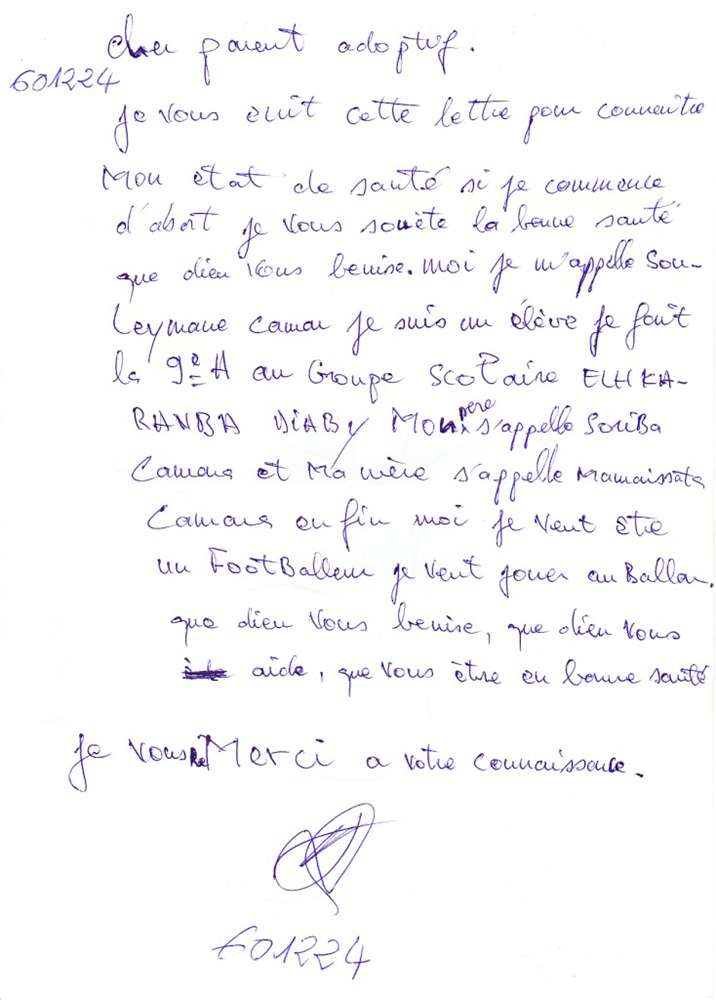 cher parent adoptif.
601224
je vous ecrit cette lettre pour connaitre
Mon état de santé si je commence
d'abort je vous souète la bonne santé
que dieu vous benise. moi je m'appelle Sou-
leymane camar je suis un élève je fait
la 9e A au Groupe Scolaire ELH KA-
RANBA DIABY Mon père s'appelle Soriba
Camara et Ma mère s'appelle Mamaissata
Camara en fin moi je veut être
un FootBalleur je veut jouer au Ballon.
que dieu vous benise, que dieu vous
aide, que vous être en bonne santé
je vous Merci a votre connaissance.
601224